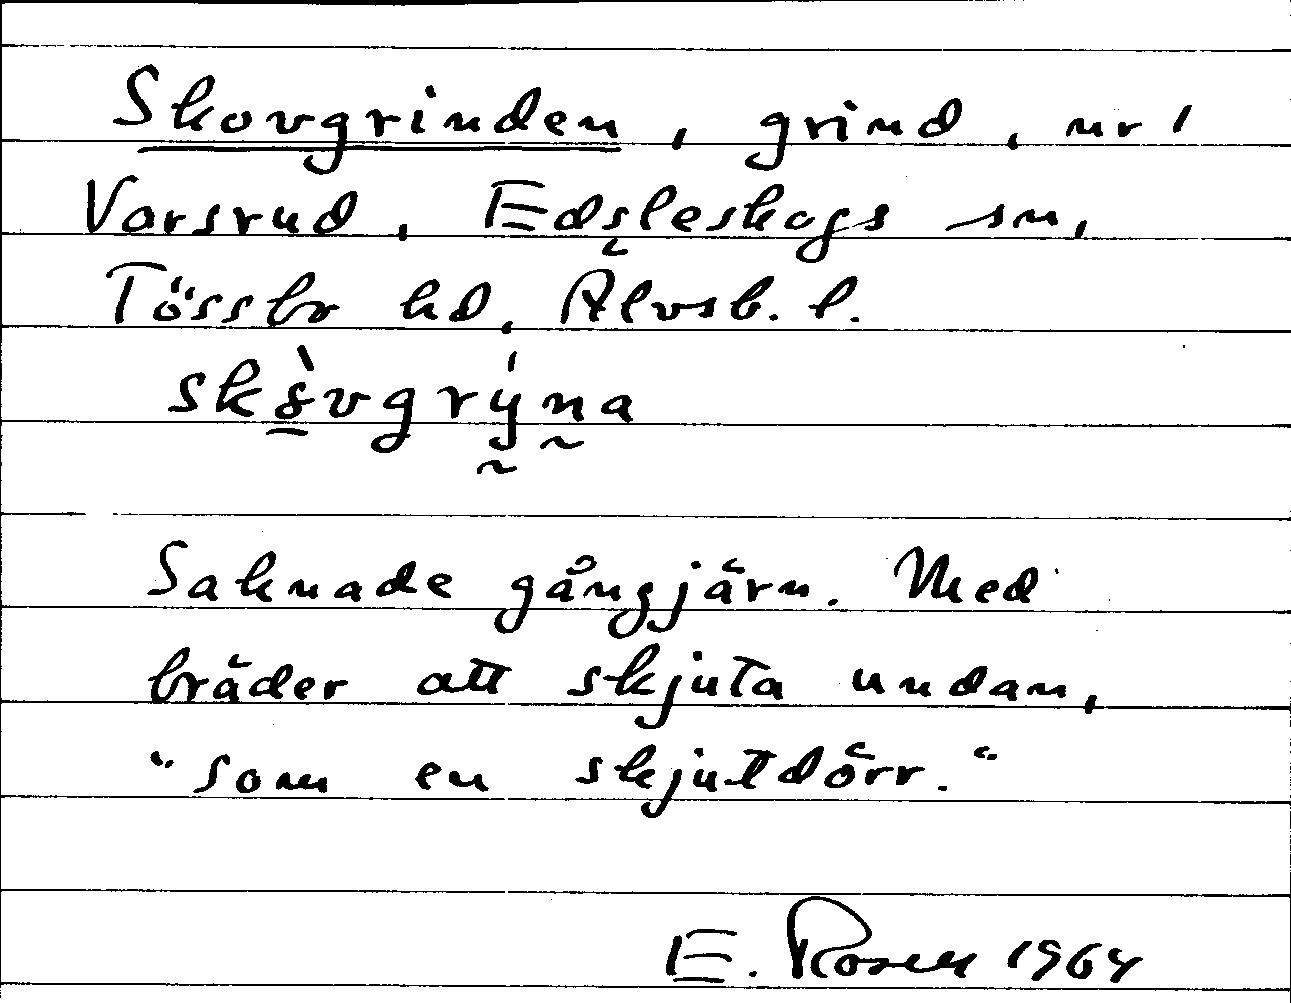 Skovgrinden, grind, nr 1
Varsrud, Edsleskogs sn,
Tössbo hd, Älvsb. l.
skòvgrýna
Saknade gångjärn. Med
bräder att skjuta undan,
"som en skjutdörr."
E. Rosen 1964